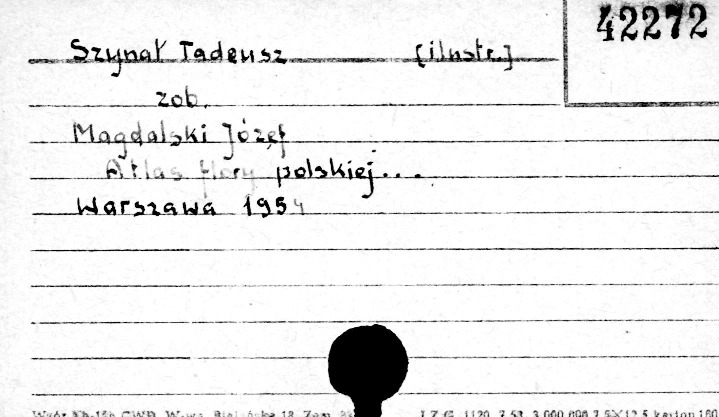 42272
Szynał Tadeusz [ilustr.]
zob.
Magdalski Józef
Atlas flory polskiej...
Warszawa 1954
Wzór Kb-15b CWP, W-wa, 18, Zam.
LZG. 1120 7.53 3.000.000 7,5×12,5 karton 180